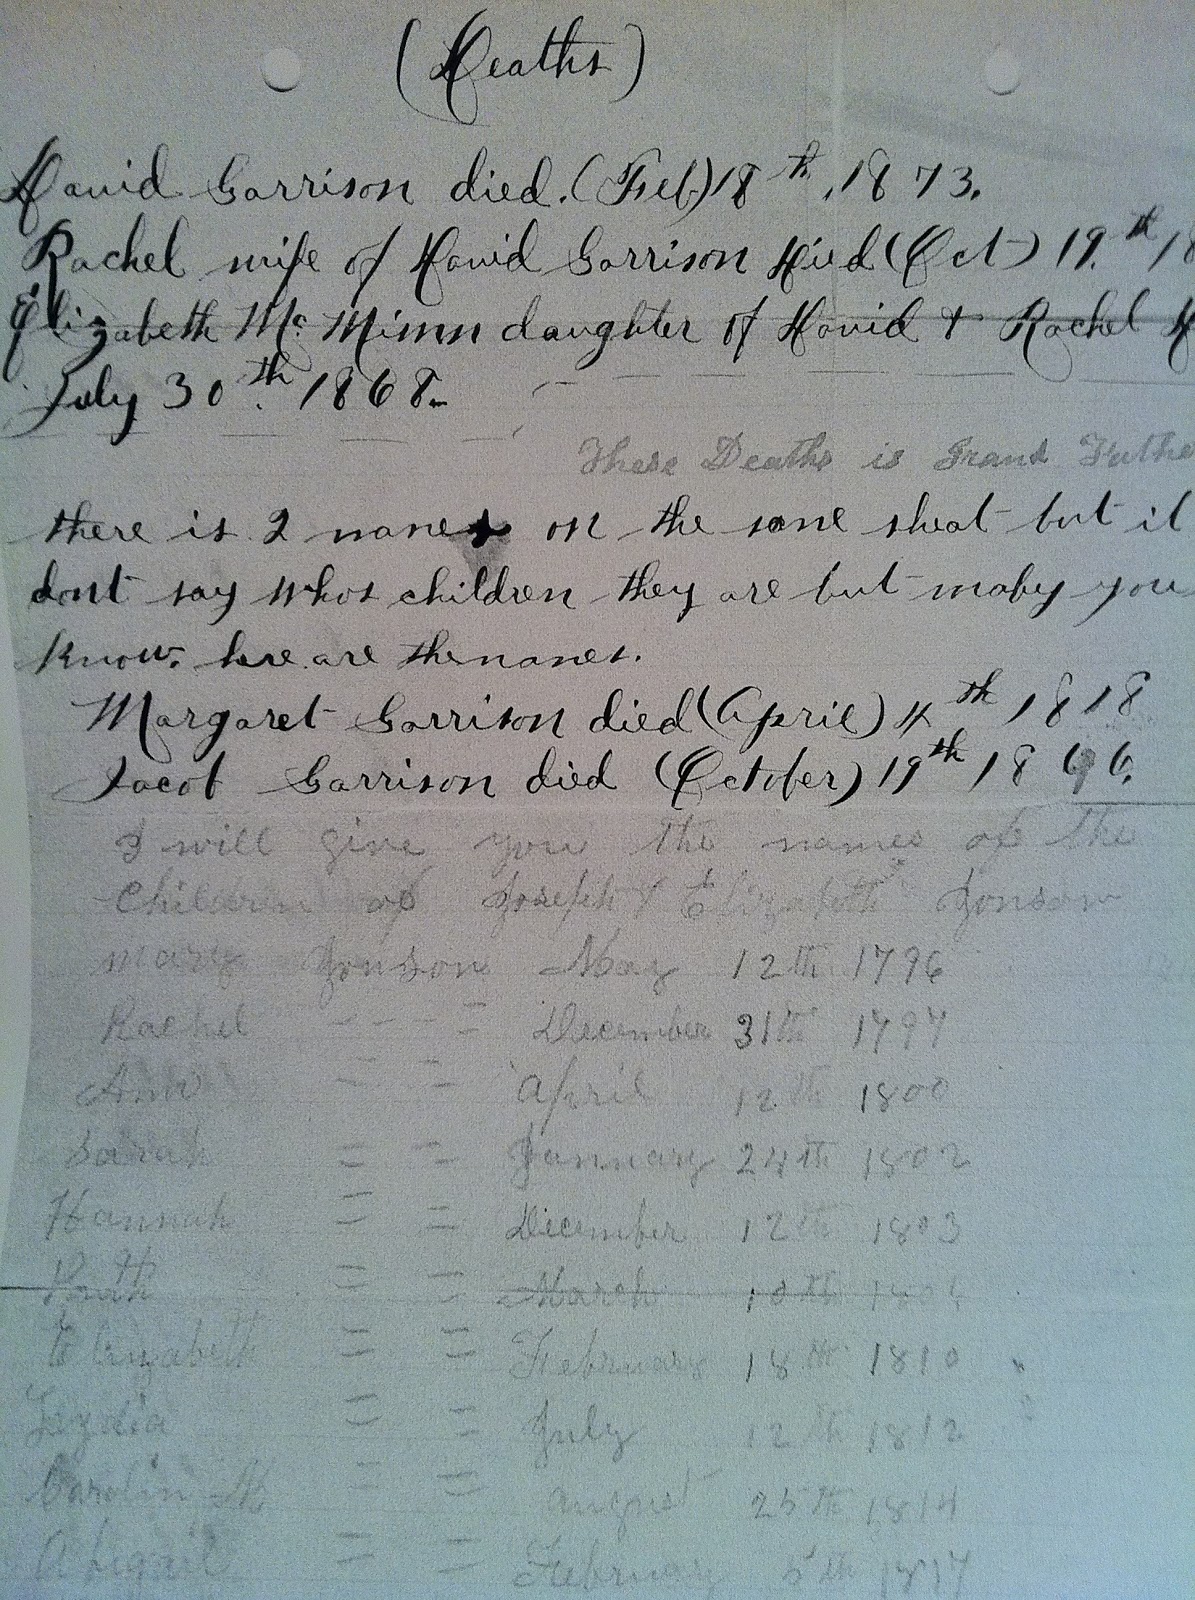 (Deaths)
David Garrison died. (Feb) 18th, 1873.
Rachel wife of David Garrison Died (Oct) 19th 18
Elizabeth Mc Minn daughter of David & Rachel
July 30th 1868.
These Deaths is Grand Fathe
there is 2 names on the same sheat but it
dont say whos children they are but maby you
know. here are the names.
Margaret Garrison died (April) 4th 1818
Jacob Garrison died (October) 19th 18 6.
I will give you the names of the
Children of Joseph & Elizabeth Jonson
Mary Jonson May 12th 1796
Rachel - - - = December 31th 1797
Ann = = April 12th 1800
Sarah = = January 24th 1802
Hannah = = December 12th 1803
Ruth = = March
Elizabeth = = February 18th 1810
Lydia = = July 12th 1812
Carolin = = august 25th 1814
Abigail = = February 5th 1817